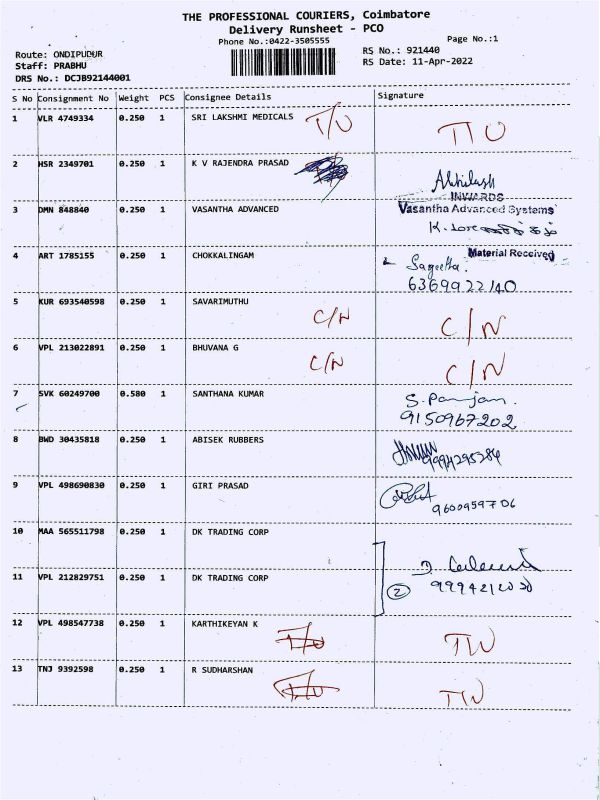 THE PROFESSIONAL COURIERS, Coimbatore
Delivery Runsheet - PCO
Phone No.:0422-3505555
Page No.:1
Route: ONDIPUDUR
RS No.: 921440
Staff: PRABHU
RS Date: 11-Apr-2022
DRS No.: DCJB92144001
S No Consignment No Weight PCS Consignee Details Signature
1 VLR 4749334 0.250 1 SRI LAKSHMI MEDICALS T/U
2 HSR 2349701 0.250 1 K V RAJENDRA PRASAD Akhilash
INWARDS
3 DMN 848840 0.250 1 VASANTHA ADVANCED Vasantha Advanced Systems
Material Received
4 ART 1785155 0.250 1 CHOKKALINGAM Sageetha.
6369922140
5 KUR 693540598 0.250 1 SAVARIMUTHU C/N C/N
6 VPL 213022891 0.250 1 BHUVANA G C/N C/N
7 SVK 60249700 0.580 1 SANTHANA KUMAR
9150967202
8 BWD 30435818 0.250 1 ABISEK RUBBERS
9994295284
9 VPL 498690830 0.250 1 GIRI PRASAD
9600959706
10 MAA 565511798 0.250 1 DK TRADING CORP
11 VPL 212829751 0.250 1 DK TRADING CORP 2
12 VPL 498547738 0.250 1 KARTHIKEYAN K T/U
13 TNJ 9392598 0.250 1 R SUDHARSHAN T/U